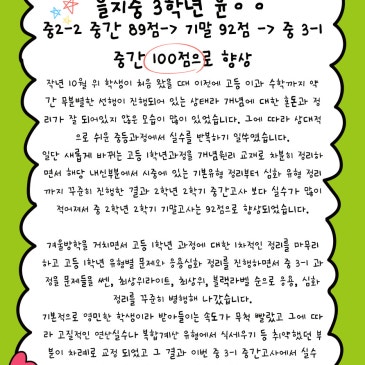 을지중 3학년 윤ㅇㅇ
중2-2 중간 89점-> 기말 92점 -> 중 3-1
중간 100점으로 향상
작년 10월 위 학생이 처음 왔을 때 이전에 고등 이과 수학까지 약
간 무분별한 선행이 진행되어 있는 상태라 개념에 대한 혼돈과 정
리가 잘 되어있지 않은 모습이 많이 있었습니다. 그에 따라 상대적
으로 쉬운 중등과정에서 실수를 반복하기 일쑤였습니다.
일단 새롭게 바뀌는 고등 1학년과정을 개념원리 교재로 차분히 정리하
면서 해당 내신부분에서 시중에 있는 기본유형 정리부터 심화 유형 정리
까지 꾸준히 진행한 결과 2학년 2학기 중간고사 보다 실수가 많이
적어져서 중 2학년 2학기 기말고사는 92점으로 향상되었습니다.
겨울방학을 거치면서 고등 1학년 과정에 대한 1차적인 정리를 마무리
하고 고등 1학년 유형별 문제와 응용심화 정리를 진행하면서 중 3-1 과
정을 문제들을 쎈, 최상위라이트, 최상위, 블랙라벨 순으로 응용, 심화
정리를 꾸준히 병행해 나갔습니다.
기본적으로 영민한 학생이라 받아들이는 속도가 무척 빨랐고 그에 따
라 고질적인 연산실수나 복합계산 유형에서 식세우기 등 취약했던 부
분이 차례로 교정 되었고 그 결과 이번 중 3-1 중간고사에서 실수